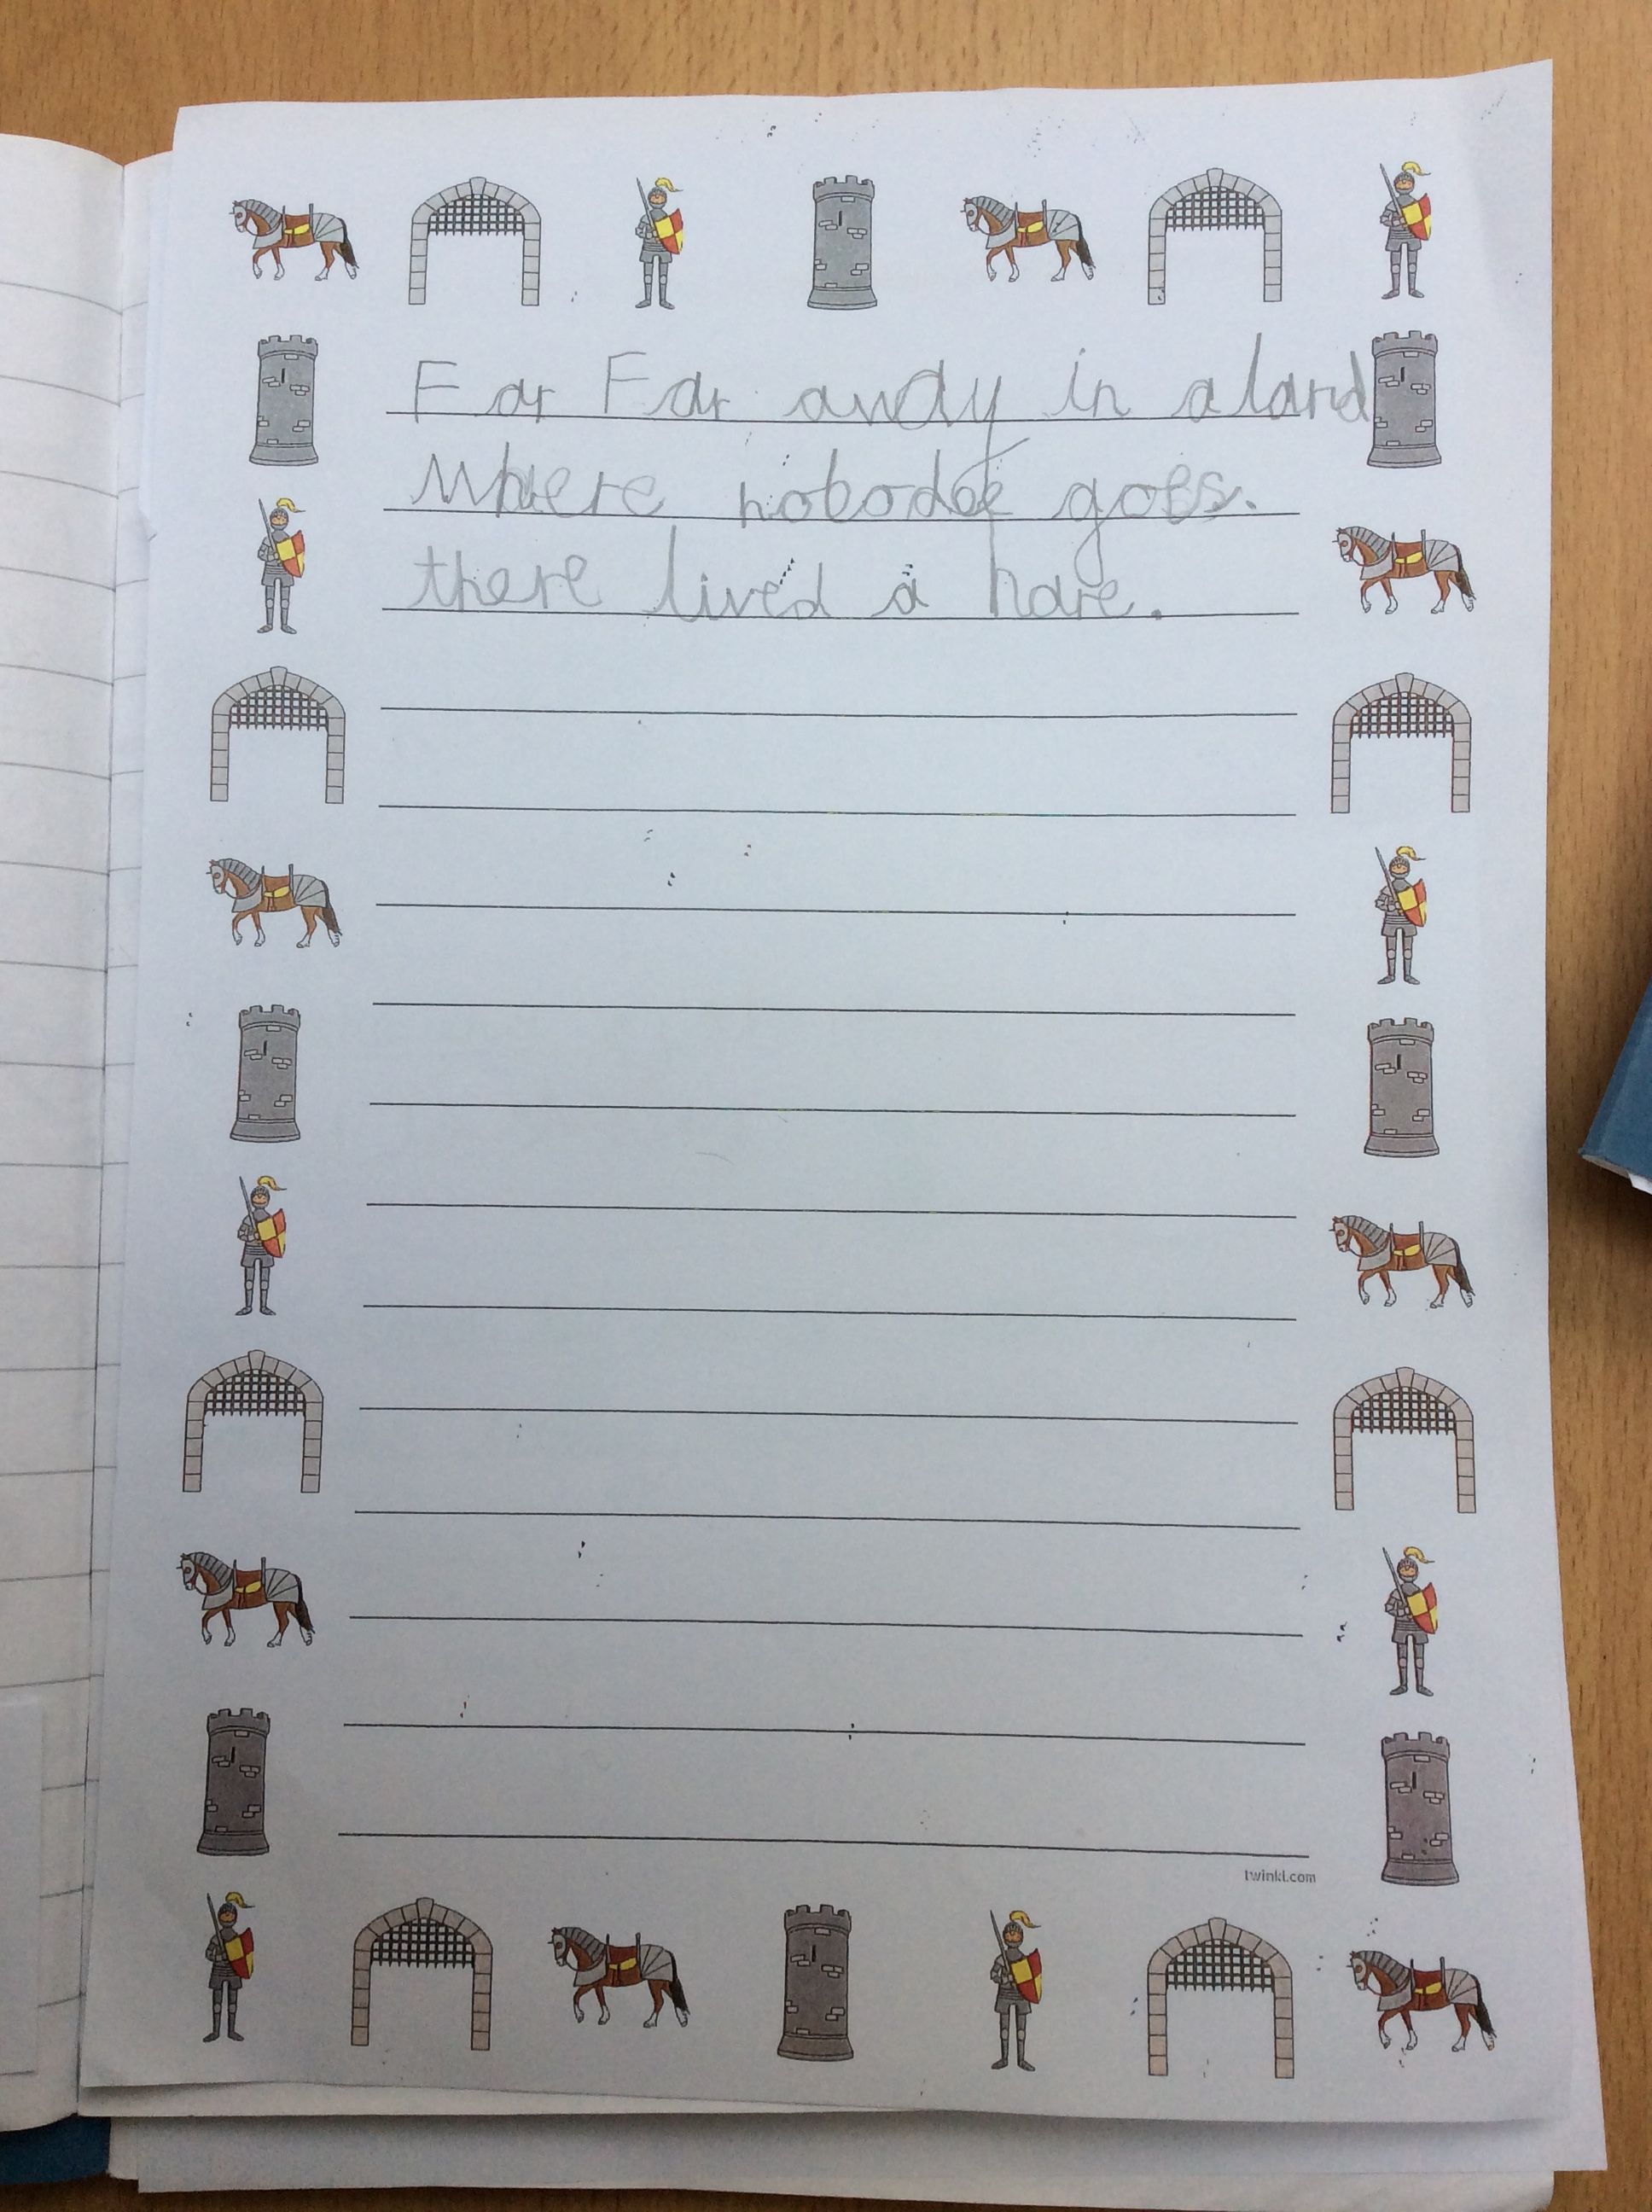 Far Far away in a land
Where nobode goes.
there lived a hare.
twinkl.com